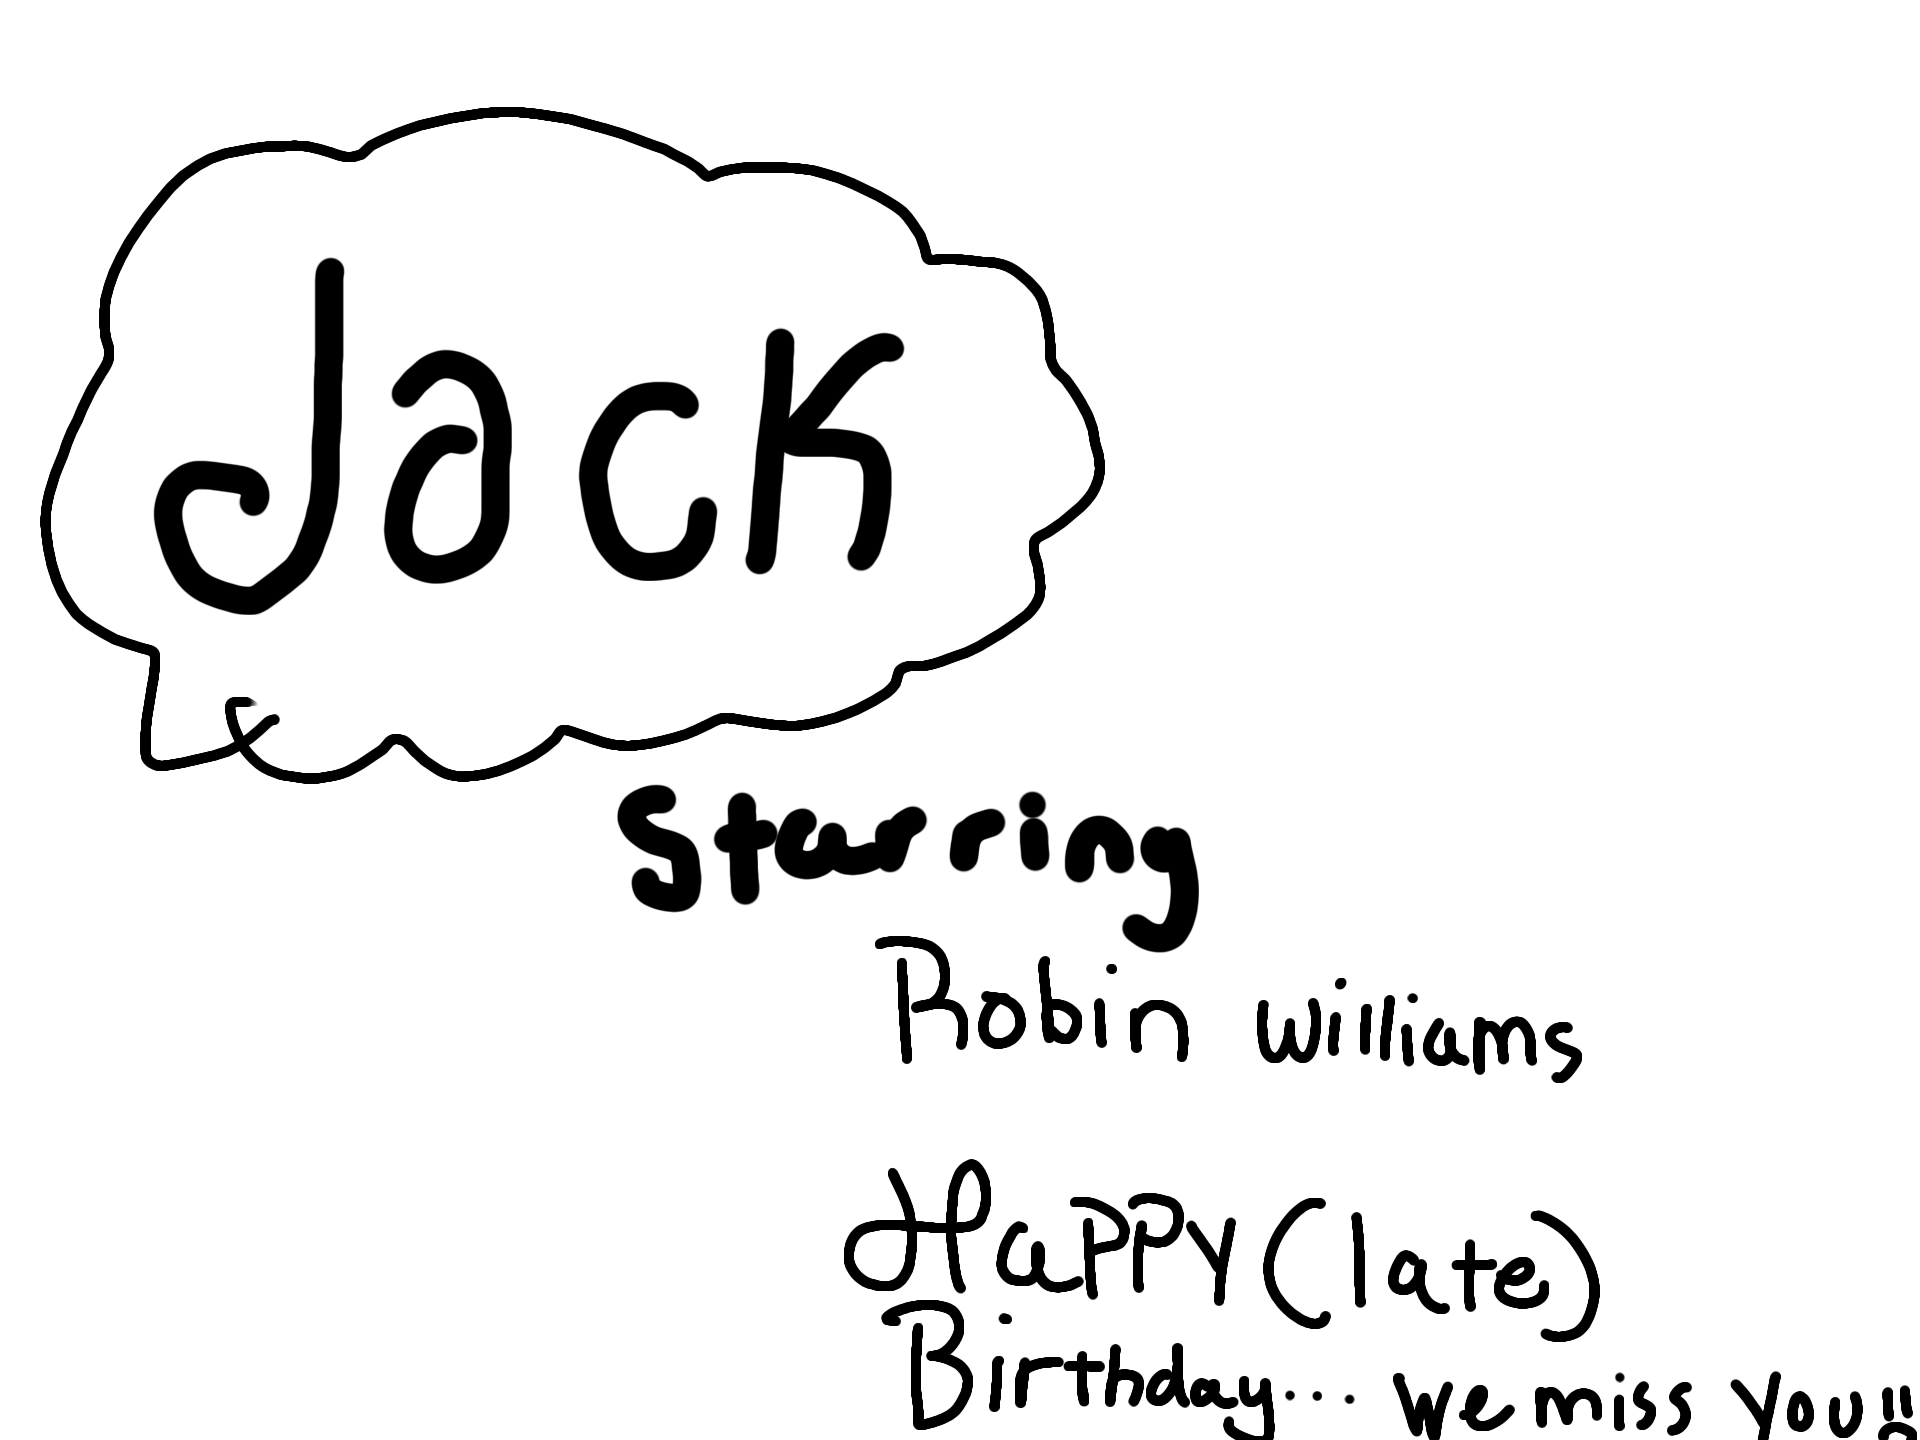 Jack
Starring
Robin Williams
Happy (late)
Birthday... We miss you!!